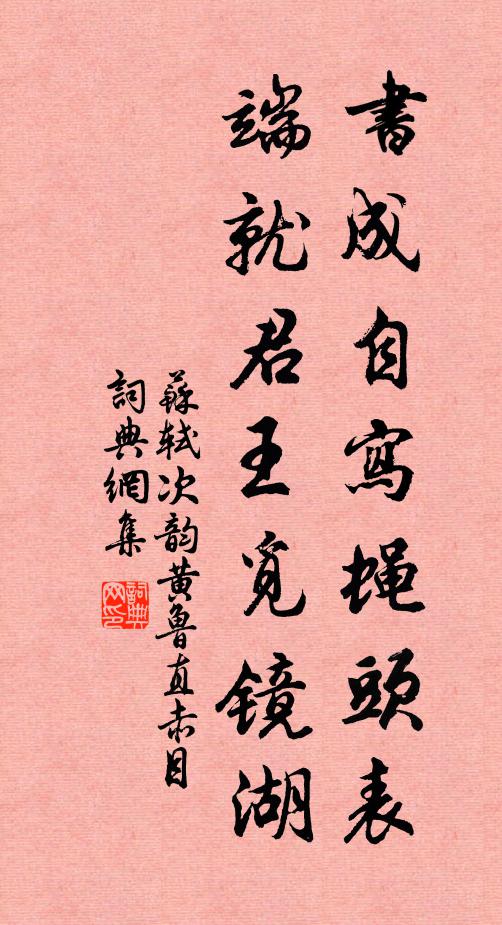 書成自寫蝇頭表
端就君王覓鏡湖
蘇轼次韵黄魯直赤目
詞典網集
詞典
网印